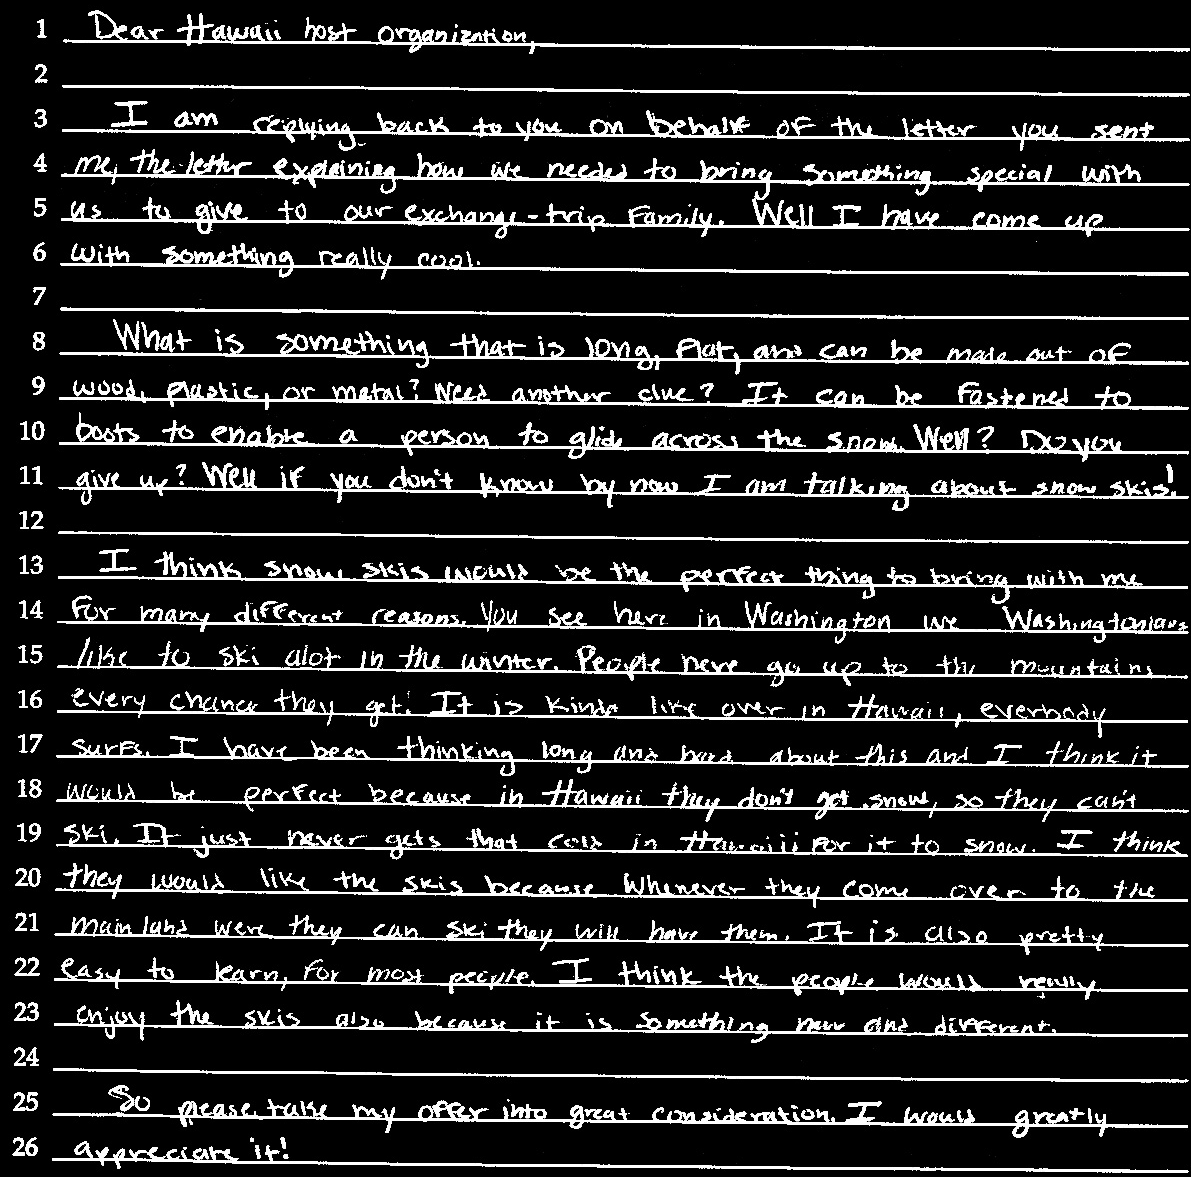 1 Dear Hawaii host organization,
2
3 I am replying back to you on behalf of the letter you sent
4 me, the letter explaining how we needed to bring something special with
5 us to give to our exchange-trip family. Well I have come up
6 with something really cool.
7
8 What is something that is long, flat, and can be made out of
9 wood, plastic, or metal? Need another clue? It can be fastened to
10 boots to enable a person to glide across the snow. Well? Do you
11 give up? Well if you don't know by now I am talking about snow skis!
12
13 I think snow skis would be the perfect thing to bring with me
14 for many different reasons. You see here in Washington we Washingtonians
15 like to ski alot in the winter. People here go up to the mountains
16 every chance they get! It is kinda like over in Hawaii, everbody
17 surfs. I have been thinking long and hard about this and I think it
18 would be perfect because in Hawaii they don't get snow, so they can't
19 ski. It just never gets that cold in Hawaii for it to snow. I think
20 they would like the skis because whenever they come over to the
21 mainland were they can ski they will have them. It is also pretty
22 easy to learn, for most people. I think the people would really
23 enjoy the skis also because it is something new and different.
24
25 So please, take my offer into great consideration. I would greatly
26 appreciate it!